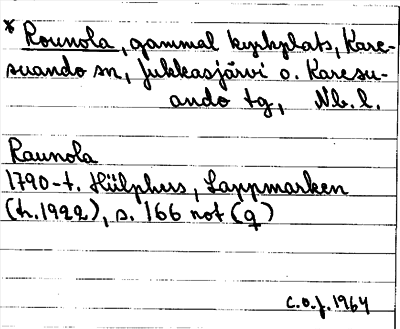 * Rounola, gammal kyrkplats, Kare-
suando sn, Jukkasjärvi o. Karesu-
ando tg, Nb. l.
Raunola
1790-t. Hülphers, Lappmarken
(tr. 1922), s. 166 not (q)
C.O.J. 1964